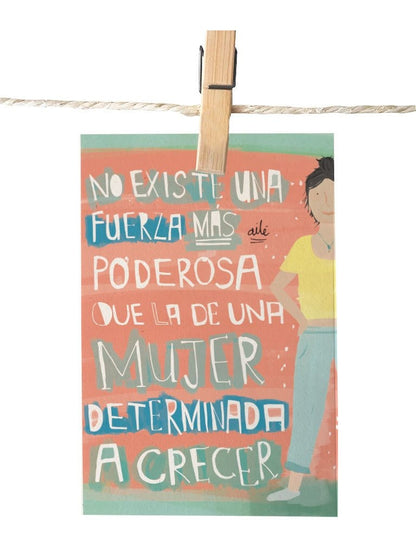 NO EXISTE UNA
FUERZA MÁS
ailé
PODEROSA
QUE LA DE UNA
MUJER
DETERMINADA
A CRECER